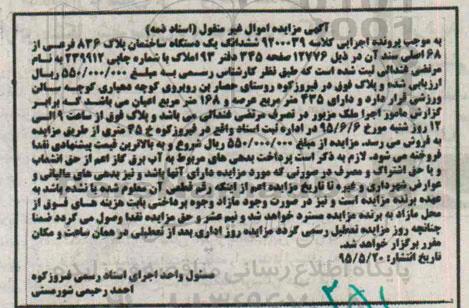 آگهی مزایده اموال غیر منقول (اسناد ذمه)
به موجب پرونده اجرایی کلاسه ۹۲۰۰۰۳۹ ششدانگ یک دستگاه ساختمان پلاک ۸۳۶ فرعی از
۶۸ اصلی سند آن در ذیل ۱۲۷۷۶ صفحه ۳۳۵ دفتر ۹۳ املاک با شماره چاپی ۲۳۹۹۱۲ به نام
مرتضی فندائی ثبت شده است که طبق نظر کارشناس رسمی به مبلغ ۵۵۰/۰۰۰/۰۰۰ ریال
ارزیابی شده و پلاک فوق در فیروزکوه روستای حصاربن روبروی کوچه دهیاری کوچه سالن
ورزشی قرار دارد و دارای ۴۳۵ متر عرصه و ۱۶۸ متر مربع اعیان می باشد که برابر
گزارش مامور اجرا ملک مزبور در تصرف مرتضی فندائی می باشد و پلاک فوق از ساعت ۹ الی
۱۲ روز شنبه مورخ ۹۵/۶/۶ در اداره ثبت اسناد واقع در فیروزکوه خ ۴۵ متری از طریق مزایده
به فروش می رسد. مزایده از مبلغ ۵۵۰/۰۰۰/۰۰۰ ریال شروع و به بالاترین قیمت پیشنهادی نقدا
فروخته می شود. لازم به ذکر است پرداخت بدهی های مربوط به آب برق گاز اعم از حق انشعاب
و یا حق اشتراک و مصرف در صورتی که مورد مزایده دارای آنها باشد و نیز بدهی های مالیاتی و
عوارض شهرداری و غیره تا تاریخ مزایده اعم از اینکه رقم قطعی آن معلوم شده یا نشده باشد به
عهده برنده مزایده است و نیز در صورت وجود مازاد وجوه پرداختی بابت هزینه های فوق از
محل مازاد به برنده مزایده مسترد خواهد شد و نیم عشر و حق مزایده نقدا وصول می گردد ضمنا
چنانچه روز مزایده تعطیل رسمی گردد مزایده روز اداری بعد از تعطیلی در همان ساعت و مکان
مقرر برگزار خواهد شد.
تاریخ انتشار: ۹۵/۵/۲۰
مسئول واحد اجرای اسناد رسمی فیروزکوه
احمد رحیمی شورمستی